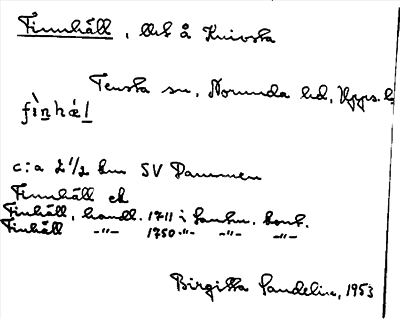 Finnhäll, lht å Knivsta
Tensta sn, Norunda hd, Upps. l.
fìnhä́l
c:a 2 1/2 km SV Dammen
Finnhäll ek
Finhäll, handl. 1711 i lantm. kont.
Finhäll -"- 1750 -"- -"- -"-
Birgitta Sandelin, 1953